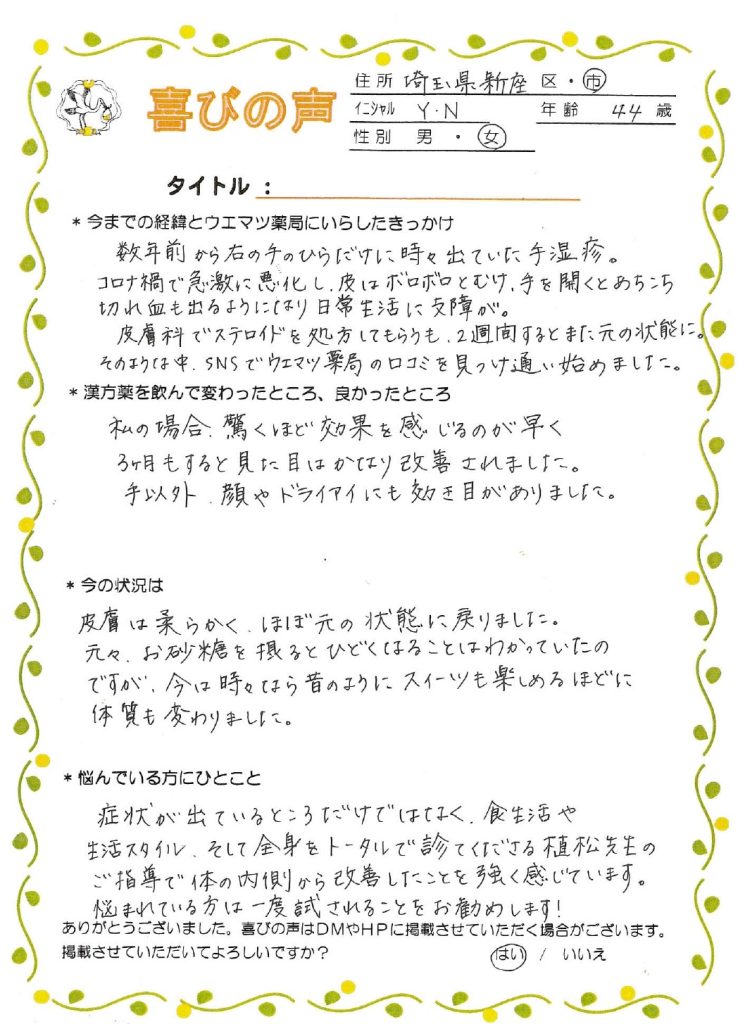 喜びの声
住所 埼玉県新座 区・市
イニシャル Y・N 年齢 44 歳
性別 男・女
タイトル：
＊今までの経緯とウエマツ薬局にいらしたきっかけ
数年前から右の手のひらだけに時々出ていた手湿疹。
コロナ禍で急激に悪化し、皮はボロボロとむけ、手を開くとあちこち
切れ血も出るようになり日常生活に支障が。
皮膚科でステロイドを処方してもらうも、2週間するとまた元の状態に。
そのような中、SNSでウエマツ薬局の口コミを見つけ通い始めました。
＊漢方薬を飲んで変わったところ、良かったところ
私の場合、驚くほど効果を感じるのが早く
3ヶ月もすると見た目はかなり改善されました。
手以外、顔やドライアイにも効き目がありました。
＊今の状況は
皮膚は柔らかく、ほぼ元の状態に戻りました。
元々、お砂糖を摂るとひどくなることはわかっていたの
ですが、今は時々なら昔のようにスイーツも楽しめるほどに
体質も変わりました。
＊悩んでいる方にひとこと
症状が出ているところだけではなく、食生活や
生活スタイル、そして全身をトータルで診てくださる植松先生の
ご指導で体の内側から改善したことを強く感じています。
悩まれている方は一度試されることをお勧めします！
ありがとうございました。喜びの声はDMやHPに掲載させていただく場合がございます。
掲載させていただいてよろしいですか？ はい / いいえ